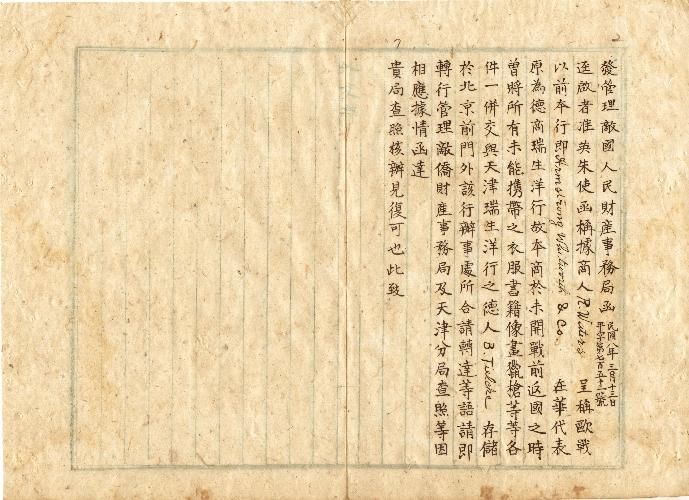 發管理敵國人民財產事務局函 民國八年三月十三日
平字第七百五十二號
逕啟者准英朱使函稱據商人R. Waters 呈稱歐戰
以前本行即Armstrong Whitworth & Co. 在華代表
原為德商瑞生洋行故本商於未開戰前返國之時
曾將所有未能携帶之衣服書籍像畫獵槍等等各
件一併交與天津瑞生洋行之德人B. 存儲
於北京前門外該行辦事處所合請轉達等語請即
轉行管理敵僑財產事務局及天津分局查照等因
相應據情函達
貴局查照核辦見復可也此致